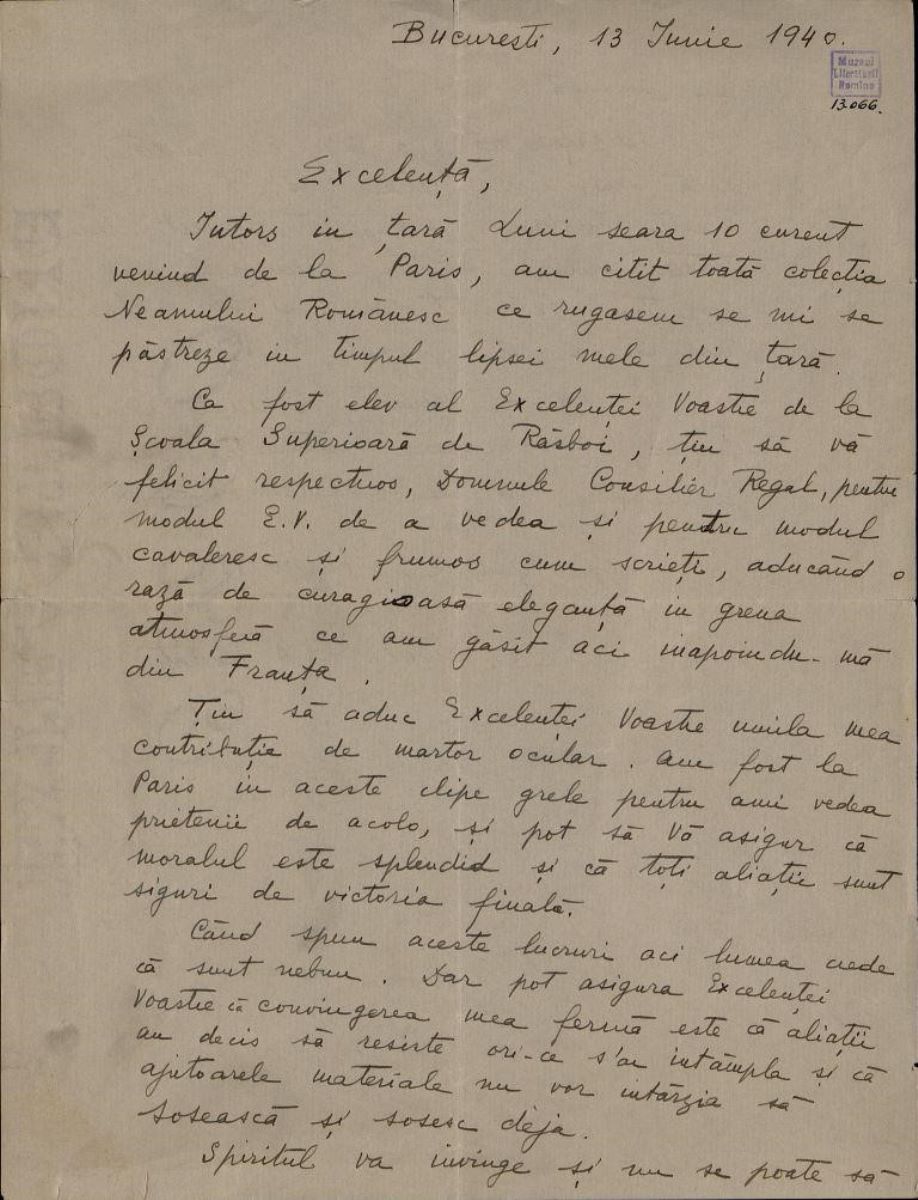 București, 13 Iunie 1940.
Muzeul
Literaturii
Romîne
13.066.
Excelență,
Intors in țară Luni seara 10 curent
venind de la Paris, am citit toată colecția
Neamului Românesc ce rugasem se mi se
păstreze in timpul lipsei mele din țară.
Ca fost elev al Excelenței Voastre de la
Școala Superioară de Răsboi, țin să vă
felicit respectuos, Domnule Consilier Regal, pentru
modul E.V. de a vedea și pentru modul
cavaleresc și frumos cum scrieți, aducând o
rază de curagioasă eleganță in greua
atmosferă ce am găsit aci inapoindu-mă
din Franța.
Țin să aduc Excelenței Voastre umila mea
contribuție de martor ocular. Am fost la
Paris in aceste clipe grele pentru ami vedea
prietenii de acolo, și pot să Vă asigur că
moralul este splendid și că toți aliații sunt
siguri de victoria finală.
Când spun aceste lucruri aci lumea crede
că sunt nebun. Dar pot asigura Excelenței
Voastre că convingerea mea fermă este că aliații
au decis să resiste ori-ce s'ar intâmpla și că
ajutoarele materiale nu vor intârzia să
sosească și sosesc deja.
Spiritul va invinge și nu se poate să